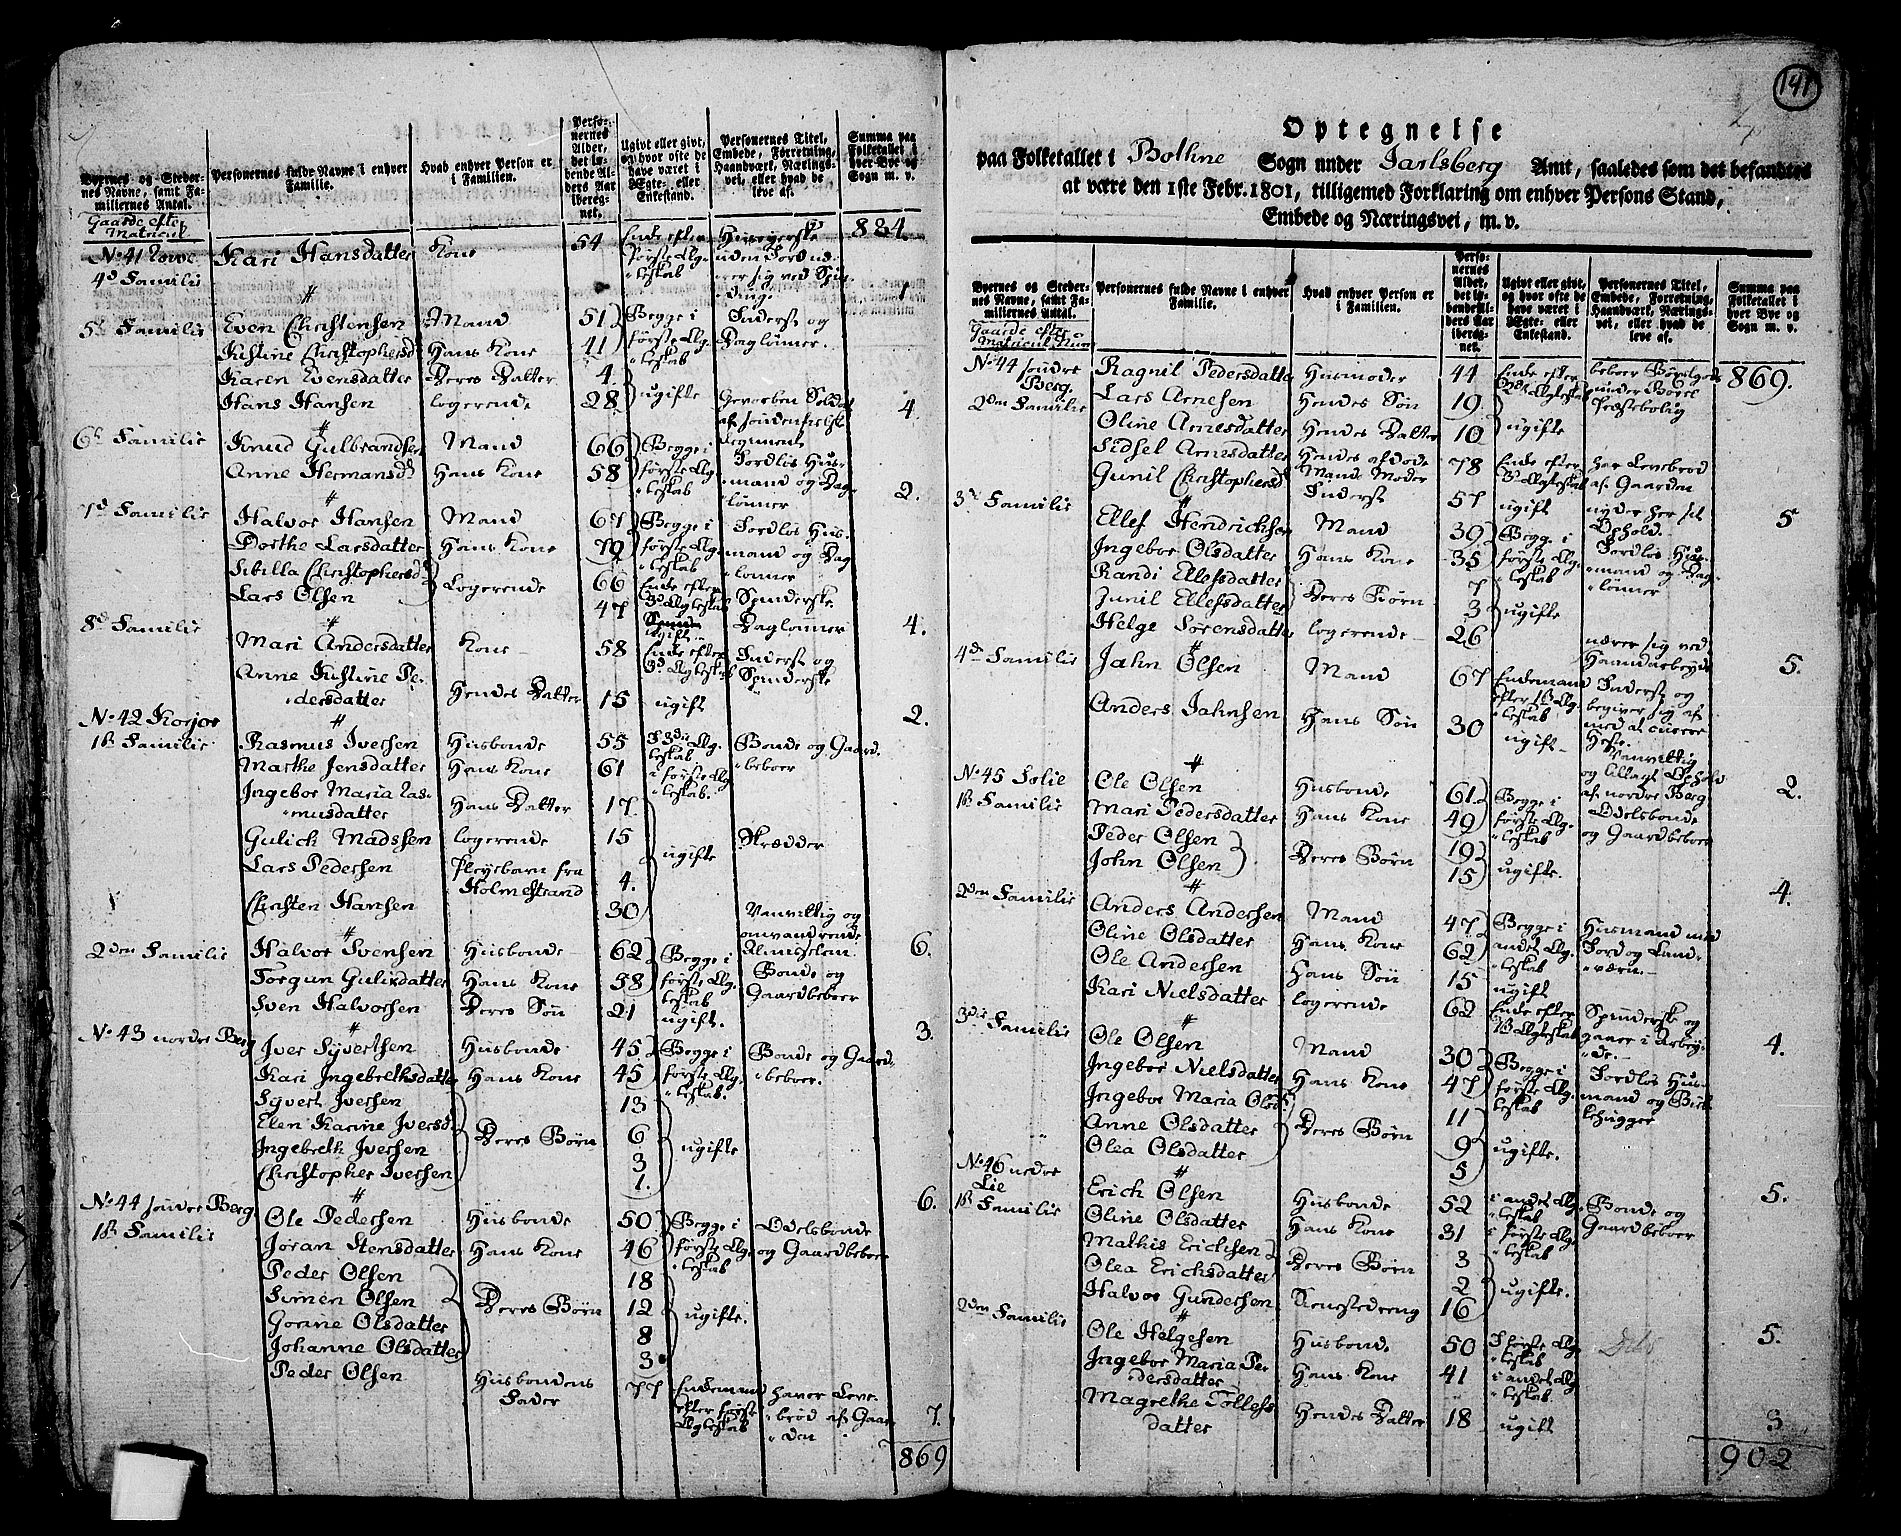 Byernes og Steder-
nes Navne, samt Fa-
miliernes Antal.
Personernes fulde Navne i enhver
Familie.
Hvad enhver Person er
i Familien.
Perso-
nernes
Alder,
det lø-
bende Al-
ders Aar
ibereg-
net.
Ugivt eller givt,
og hvor ofte de
have været i
Ægte- eller
Enkestand.
Personernes Titel,
Embede, Forretning,
Haandværk, Nærings-
vei, eller hvad de
leve af.
Summa paa
Folketallet i
hver Bye og
Sogn m. v.
Gaarde efter
Matricul
884.
No 41
4de Familie
Kari Hansdatter Kone 54 Enke efter
første Æg-
teskab
1
5te Familie
Even Christensen Mand 51 Begge i Inderst og
Kistine Christophersd Hans Kone 41 første Æg- Daglønner
teskab
Karen Evensdatter Deres Datter 4. ugifte
Hans Hansen logerende 28 Gevorben Soldat
4.
6te Familie
Knud Gulbrandsen Mand 66 Begge i Jordløs Hus-
Anne Hermansd Hans Kone 58 første Æg- mand og Dag-
teskab lønner
2.
7de Familie
Halvor Hansen Mand 67 Begge i Jordløs Hus-
Dorthe Larsdatter Hans Kone 79 første Æg- mand og Dag-
teskab lønner
Sibilla Christophersd Logerende 66 Enke efter Spinderske
Lars Olsen 47 ugift Daglønner
4.
8de Familie
Mari Andersdatter Kone 58 Enke efter Inderst og
3d Ægteskab Spinderske
Anne Kistine Pe-
dersdatter Hendes Datter 15 ugift
2.
No 42 Korsjor
1ste Familie
Rasmus Iversen Husbonde 55 Bonde og Gaard-
Marthe Jensdatter Hans Kone 61 i første Æg- beboer
teskab.
Ingebor Maria Ras-
musdatter Hans Datter 17
Gulich Madssen logerende 15 ugifte Skrædder
Lars Pedersen Pleyebarn fra
Holmestrand 4.
Christen Hansen 30 Vanvittig og
omvandrende
Almisselem
6.
2den Familie
Halvor Svensen Husbonde 62 Begge i
Torgun Guliksdatter Hans Kone 58 første Æg- Bonde og
teskab Gaardbeboer
Sven Halvorsen Deres Søn 21 ugift.
3.
No 43 nordre Berg
Iver Syvertsen Husbonde 45 Begge i Bonde og Gaard-
Kari Ingebrethsdatter Hans Kone 45 første Æg- beboer.
teskab.
Syvert Iversen 13
Elen Karine Iversd. Deres Børn 6 ugifte
Ingebreth Iversen 3
Christopher Iversen 1.
6.
No 44 søndre Berg
1ste Familie
Ole Pedersen Husbonde 50 Begge i Odelsbonde
Jøran Stensdatter Hans Kone 46 første Æg- og Gaardbeboer
teskab
Peder Olsen 18
Simen Olsen Deres Børn 12 ugifte.
Gorine Olsdatter 8
Johanne Olsdatter 3
Peder Olsen Husbondens
Fader 77 Enkemand haver Leve-
efter første brød af Gaar-
Ægteskab den
7.
869
141
Optegnelse
paa Folketallet i Bothne Sogn under Jarlsberg Amt, saaledes som det befandtes
at være den 1ste Febr. 1801, tilligemed Forklaring om enhver Persons Stand,
Embede og Næringsvei, m. v.
Byernes og Steder-
nes Navne, samt Fa-
miliernes Antal.
Personernes fulde Navne i enhver
Familie.
Hvad enhver Person er
i Familien.
Perso-
nernes
Alder,
det lø-
bende Al-
ders Aar
ibereg-
net.
Ugivt eller givt,
og hvor ofte de
have været i
Ægte- eller
Enkestand.
Personernes Titel,
Embede, Forretning,
Haandværk, Nærings-
vei, eller hvad de
leve af.
Summa paa
Folketallet i
hver Bye og
Sogn m. v.
Gaarde efter
869.
No 44 søndre
Berg.
2den Familie
Ragnil Pedersdatter Husmoder 44 Enke efter
Lars Arnesen Hendes Søn 19.
Oline Arnesdatter Hendes Datter 10 ugifte
Sidsel Arnesdatter Hendes afdøde
Mands Moder 78 Enke efter har Levebrød
af Gaarden
Gunil Christophersd Inderst 57 ugift nyder her sit
Ophold.
5
3die Familie
Ellef Hendrichsen Mand 39 Begge i Jordløs Hus-
Ingebor Olsdatter Hans Kone 35 første Æg- mand og Dag-
teskab lønner
Randi Ellefsdatter Deres Børn 7 ugifte
Junil Ellefsdatter 3
Helge Sørensdatter logerende 26 nærer sig ved
Haandarbeyde
5.
4de Familie
Jahn Olsen Mand 67 Enkemand Inderst og
Anders Jahnsen Hans Søn 30 ugift
Vanvittig
2.
No 45 Solie
1ste Familie
Ole Olsen Husbonde 61 Begge i Odelsbonde
Mari Pedersdatter Hans Kone 49 første Æg- og Gaardbeboer
teskab
Peder Olsen Deres Børn 19 ugifte.
John Olsen 15
4.
2den Familie
Anders Andersen Mand 47 Begge i Husmand med
Oline Olsdatter Hans Kone 62 andet Æg- Jord og Land-
teskab værn.
Ole Andersen Hans Søn 15 ugift
Kari Nielsdatter logerende 62 Enke efter Spinderske og
gaaer i Arbey-
de.
4.
3die Familie
Ole Olsen Mand 30 Begge i Jordløs Hus-
Ingebor Nielsdatter Hans Kone 47 første Æg- mand og
teskab
Ingebor Maria Olsd. 11
Anne Olsdatter Deres Børn 9 ugifte.
Olea Olsdatter 5
5.
No 46 nedre
Lie
1ste Familie
Erich Olsen Husbonde 52 i andet Æg- Bonde og
teskab Gaardbeboer
Oline Olsdatter Hans Kone 31 i første Æg-
teskab
Mathis Erichsen Deres Børn 3 ugifte.
Olea Erichsdatter 2
Halvor Gundersen Tienestedreng 16
5.
2den Familie
Ole Helgesen Husbonde 50 I første Æg-
teskab
Ingebor Maria Pe-
dersdatter Hans Kone 41 i andet Æg-
teskab
Magrethe Tollefs
datter Hendes Datter 18 ugift
3
902